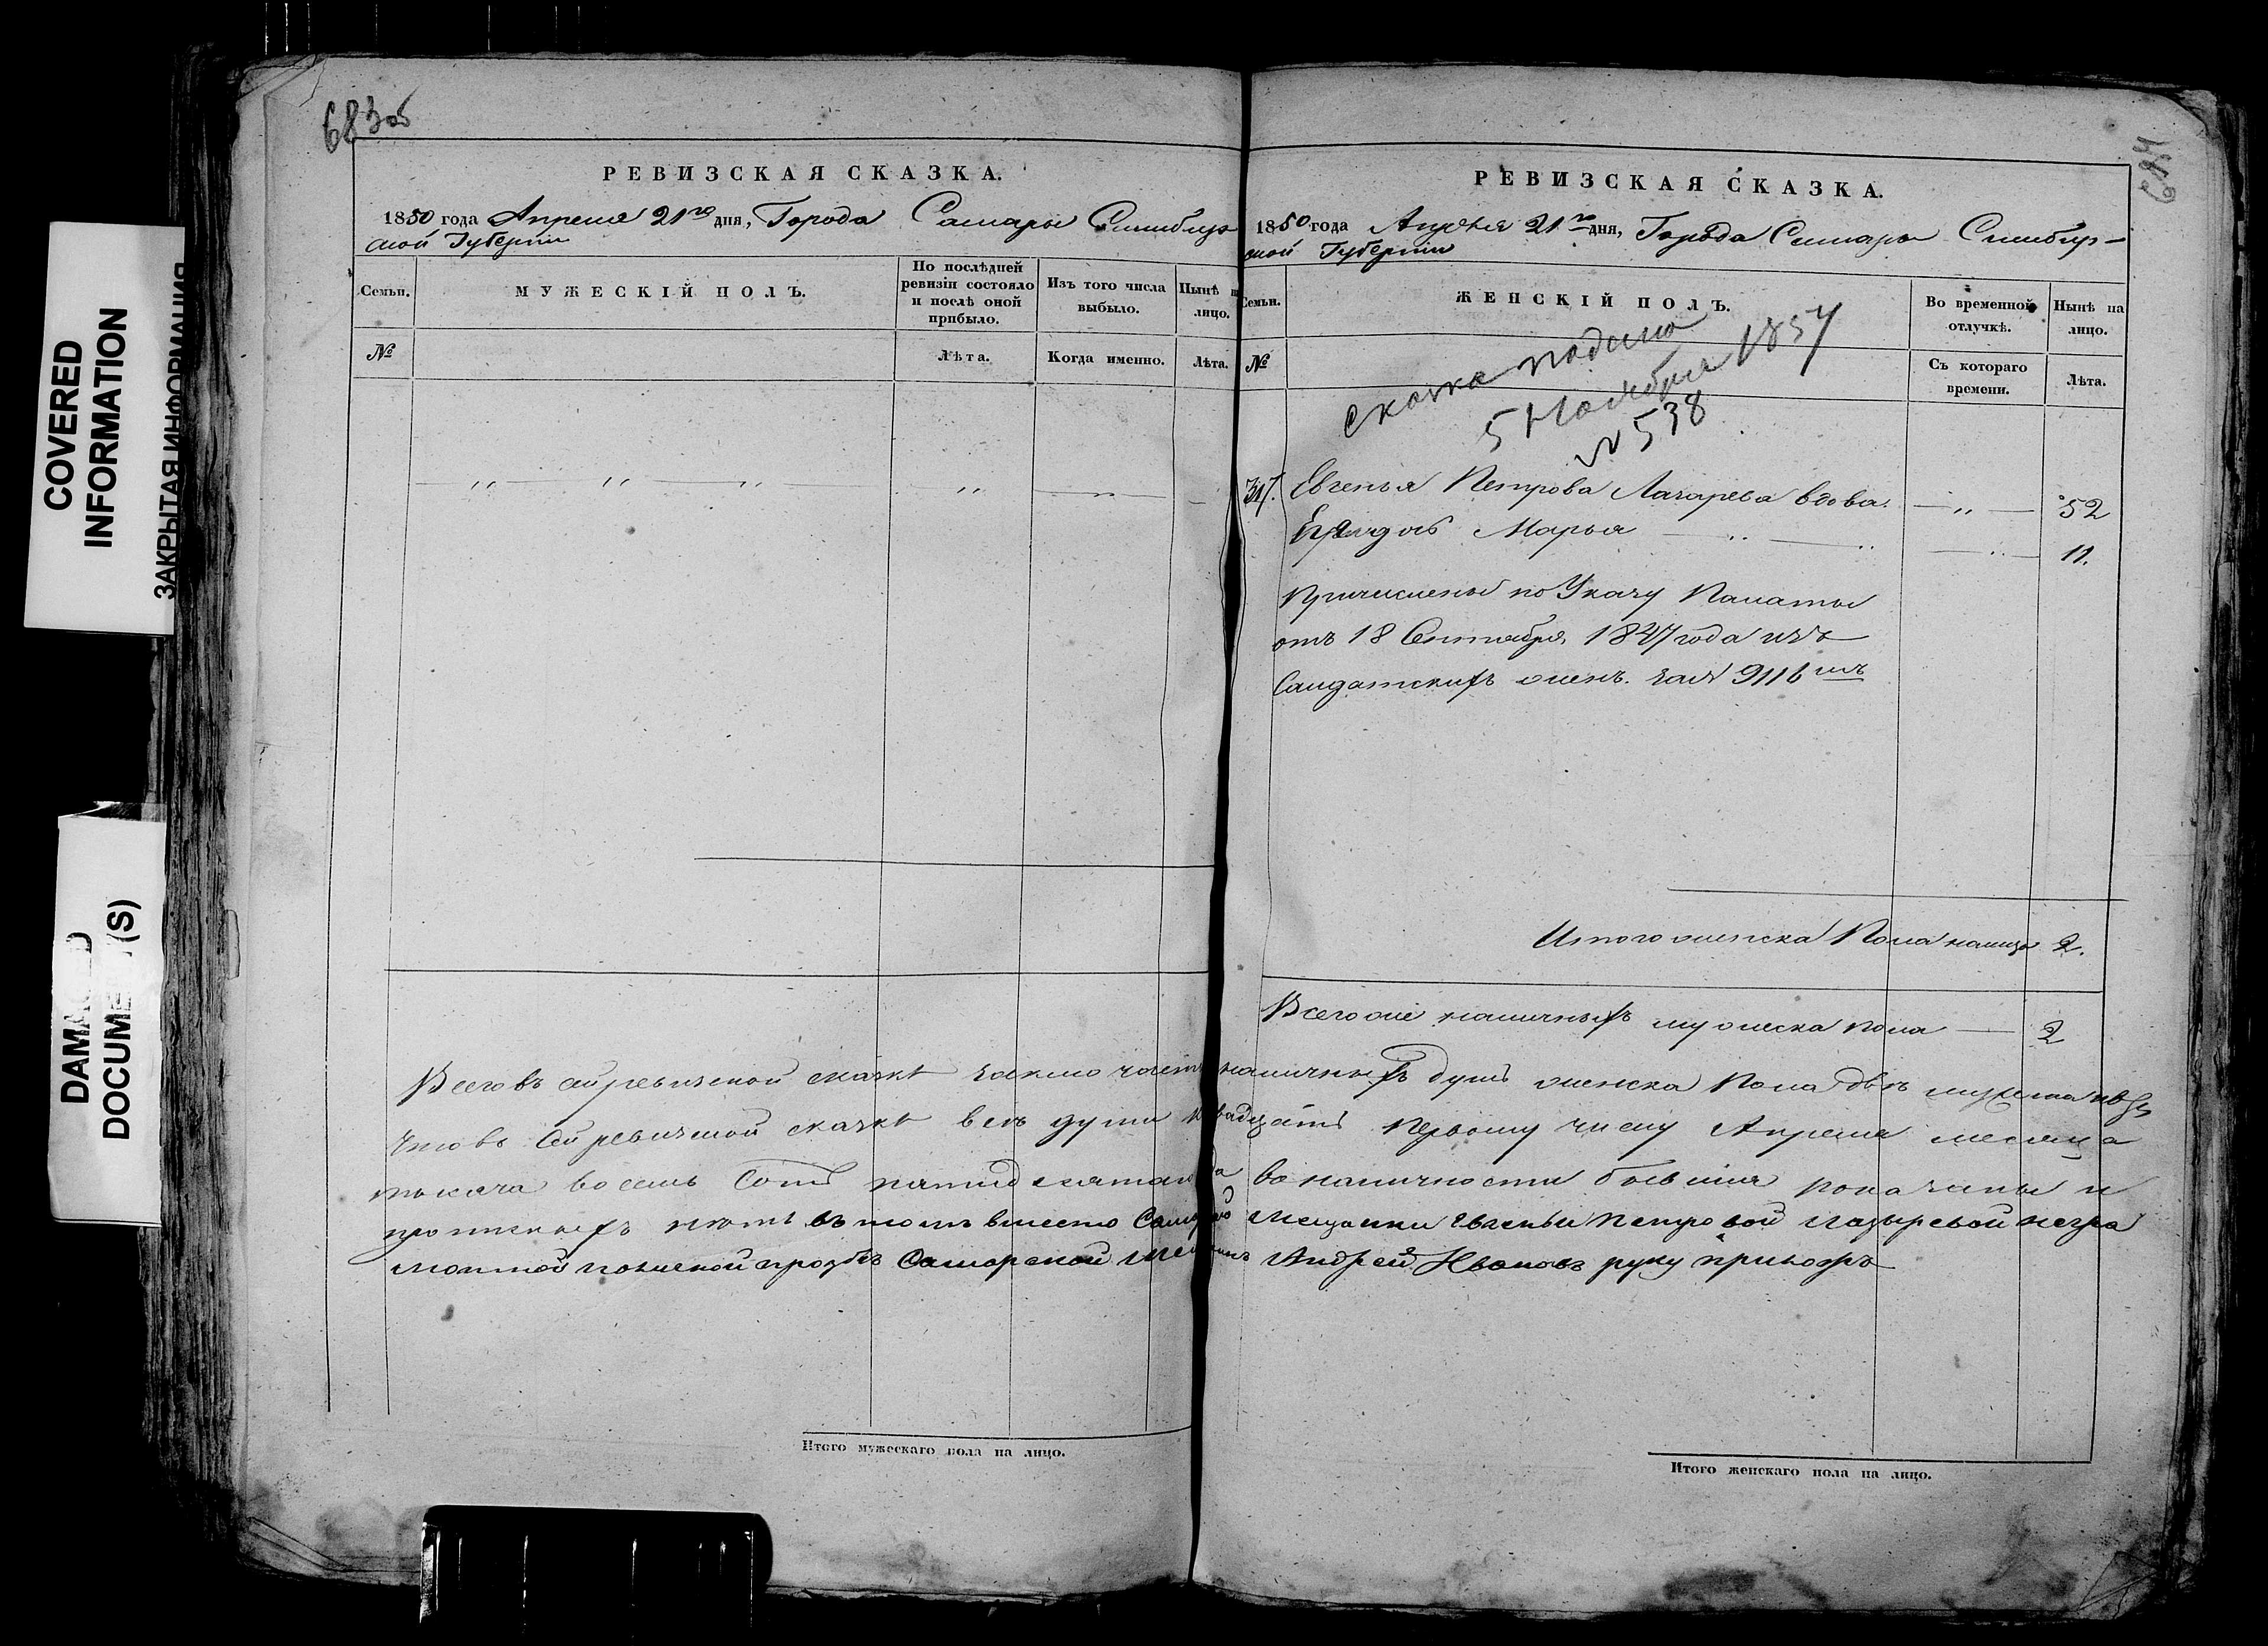 COVERED
INFORMATION
ЗАКРЫТАЯ ИНФОРМАЦИЯ
683 об
РЕВИЗСКАЯ СКАЗКА.
1850 года Апреля 21го дня, Города Самары Симбир
ской Губернии
Семьи.
МУЖЕСКІЙ ПОЛЪ.
По послѣдней
ревизіи состояло
и послѣ оной
прибыло.
Изъ того числа
выбыло.
Нынѣ
лицо.
№
Лѣта.
Когда именно.
Лѣта.
Итого мужескаго пола на лицо.
684
РЕВИЗСКАЯ СКАЗКА.
1850 года Апреля 21го дня, Города Самары Симбир-
ской Губернии
Семьи.
ЖЕНСКІЙ ПОЛЪ.
Во временной
отлучкѣ.
Нынѣ на
лицо.
№
Съ котораго
времени.
Лѣта.
сказка подана
5 Ноября 1857
№ 538
Евгенья Петрова Лазарева вдова. 52
Марья 11.
Причислены по Указу Палаты
отъ 18 Сентября 1847 года изъ
Салдатскихъ женъ. за № 9116мъ
Итого женска Пола налицо 2.
Всего же наличныхъ муженска пола 2
Всего въ сей ревизской сказке наличныхъ душъ женска Пола двѣ
Что въ сей ревизской сказке все души к двадцать Первому числу Апреля месяца
тысяча восемь сотъ пятидесятаго года во наличности бывшия показаны и
прописныхъ нетъ въ томъ вместо Самарской мещанки Евгеньи Петровой Лазыревой негра
мотной по личной прозбе Самарской мещанинъ Андрей Ивановъ руку приложъ
Итого женскаго пола на лицо.